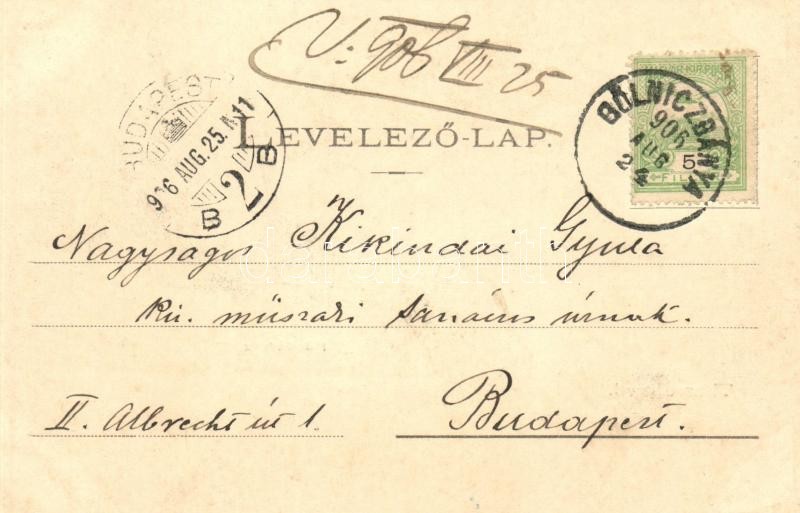 V. 906 VIII 25
BUDAPEST
906 AUG. 25. N11
B 2 B
GÖLNICZBÁNYA
906 AUG 24
MAGYAR KIR. POSTA
5
FILL
LEVELEZŐ-LAP.
Nagyságos Kikindai Gyula
kir. műszaki tanácsos úrnak.
II. Albrecht út 1.
Budapest.